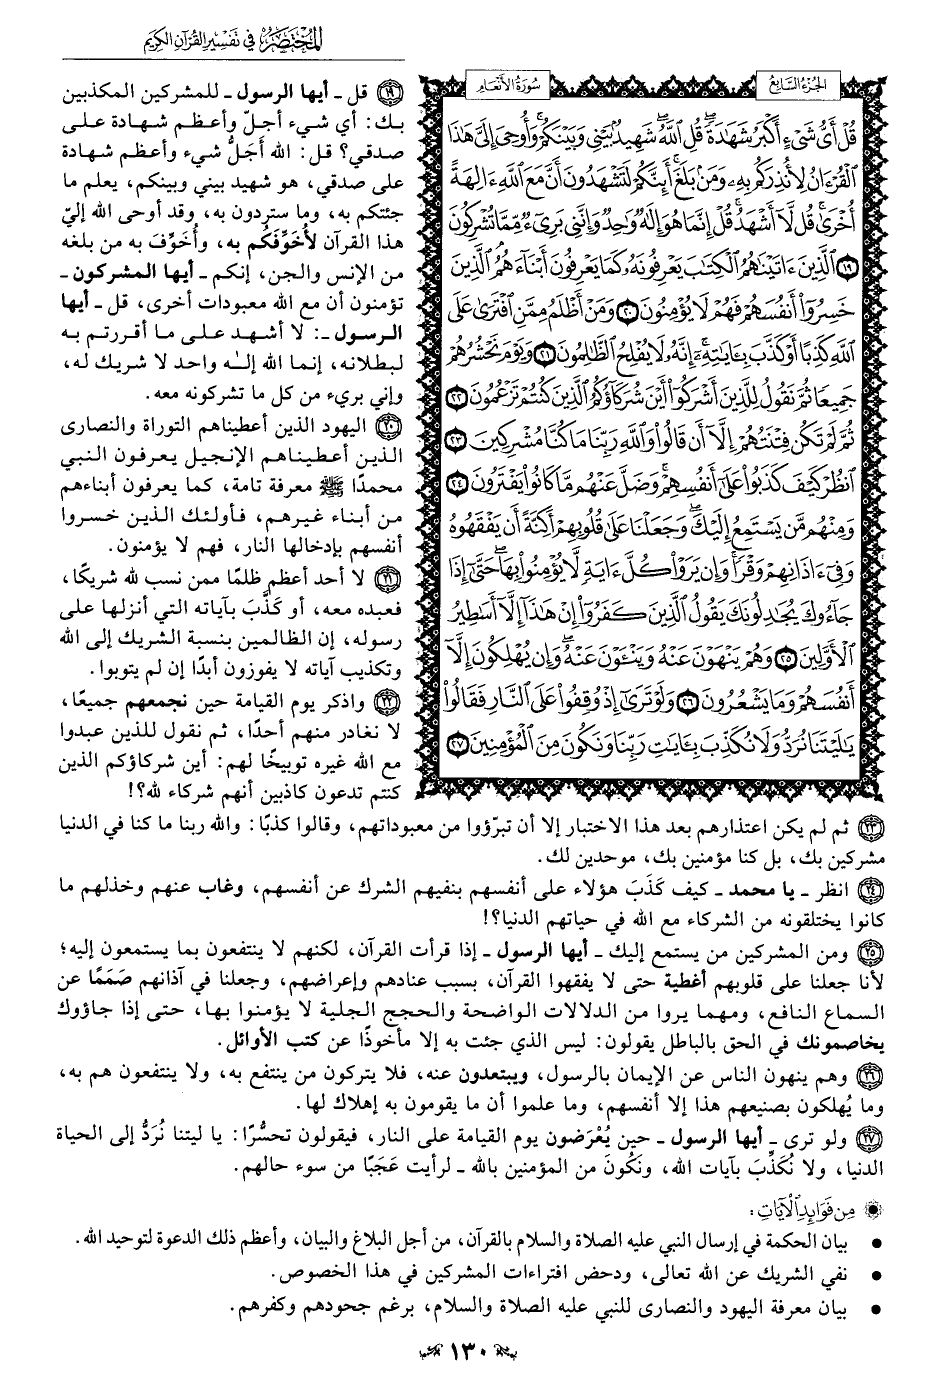 المختصر في تفسير القرآن الكريم
الجزء السابع
سورة الأنعام
قُلْ أَيُّ شَيْءٍ أَكْبَرُ شَهَٰدَةًۖ قُلِ ٱللَّهُۖ شَهِيدُۢ بَيْنِي وَبَيْنَكُمْۚ وَأُوحِيَ إِلَيَّ هَٰذَا
ٱلْقُرْءَانُ لِأُنذِرَكُم بِهِۦ وَمَنۢ بَلَغَۚ أَئِنَّكُمْ لَتَشْهَدُونَ أَنَّ مَعَ ٱللَّهِ ءَالِهَةً
أُخْرَىٰۚ قُل لَّآ أَشْهَدُۚ قُلْ إِنَّمَا هُوَ إِلَٰهٌ وَٰحِدٌ وَإِنَّنِي بَرِيٓءٌ مِّمَّا تُشْرِكُونَ
١٩ ٱلَّذِينَ ءَاتَيْنَٰهُمُ ٱلْكِتَٰبَ يَعْرِفُونَهُۥ كَمَا يَعْرِفُونَ أَبْنَآءَهُمُۘ ٱلَّذِينَ
خَسِرُوٓا۟ أَنفُسَهُمْ فَهُمْ لَا يُؤْمِنُونَ ٢٠ وَمَنْ أَظْلَمُ مِمَّنِ ٱفْتَرَىٰ عَلَى
ٱللَّهِ كَذِبًا أَوْ كَذَّبَ بِـَٔايَٰتِهِۦٓۚ إِنَّهُۥ لَا يُفْلِحُ ٱلظَّٰلِمُونَ ٢١ وَيَوْمَ نَحْشُرُهُمْ
جَمِيعًا ثُمَّ نَقُولُ لِلَّذِينَ أَشْرَكُوٓا۟ أَيْنَ شُرَكَآؤُكُمُ ٱلَّذِينَ كُنتُمْ تَزْعُمُونَ ٢٢
ثُمَّ لَمْ تَكُن فِتْنَتُهُمْ إِلَّآ أَن قَالُوا۟ وَٱللَّهِ رَبِّنَا مَا كُنَّا مُشْرِكِينَ ٢٣
ٱنظُرْ كَيْفَ كَذَبُوا۟ عَلَىٰٓ أَنفُسِهِمْۚ وَضَلَّ عَنْهُم مَّا كَانُوا۟ يَفْتَرُونَ ٢٤
وَمِنْهُم مَّن يَسْتَمِعُ إِلَيْكَۖ وَجَعَلْنَا عَلَىٰ قُلُوبِهِمْ أَكِنَّةً أَن يَفْقَهُوهُ
وَفِيٓ ءَاذَانِهِمْ وَقْرًاۚ وَإِن يَرَوْا۟ كُلَّ ءَايَةٍ لَّا يُؤْمِنُوا۟ بِهَاۖ حَتَّىٰٓ إِذَا
جَآءُوكَ يُجَٰدِلُونَكَ يَقُولُ ٱلَّذِينَ كَفَرُوٓا۟ إِنْ هَٰذَآ إِلَّآ أَسَٰطِيرُ
ٱلْأَوَّلِينَ ٢٥ وَهُمْ يَنْهَوْنَ عَنْهُ وَيَنْـَٔوْنَ عَنْهُۖ وَإِن يُهْلِكُونَ إِلَّآ
أَنفُسَهُمْ وَمَا يَشْعُرُونَ ٢٦ وَلَوْ تَرَىٰٓ إِذْ وُقِفُوا۟ عَلَى ٱلنَّارِ فَقَالُوا۟
يَٰلَيْتَنَا نُرَدُّ وَلَا نُكَذِّبَ بِـَٔايَٰتِ رَبِّنَا وَنَكُونَ مِنَ ٱلْمُؤْمِنِينَ ٢٧
١٩ قل ـ أيها الرسول ـ للمشركين المكذبين
بك: أي شيء أجلّ وأعظم شهادة على
صدقي؟ قل: الله أَجَلُّ شيء وأعظم شهادة
على صدقي، هو شهيد بيني وبينكم، يعلم ما
جئتكم به، وما ستردون به، وقد أوحى الله إليّ
هذا القرآن لأُخَوِّفَكُم به، وأُخَوِّفَ به من بلغه
من الإنس والجن، إنكم ـ أيها المشركون ـ
تؤمنون أن مع الله معبودات أخرى، قل ـ أيها
الرسول ـ: لا أشهد على ما أقررتم به
لبطلانه، إنما الله إلٰه واحد لا شريك له،
وإني بريء من كل ما تشركونه معه.
٢٠ اليهود الذين أعطيناهم التوراة والنصارى
الذين أعطيناهم الإنجيل يعرفون النبي
محمدًا ﷺ معرفة تامة، كما يعرفون أبناءهم
من أبناء غيرهم، فأولئك الذين خسروا
أنفسهم بإدخالها النار، فهم لا يؤمنون.
٢١ لا أحد أعظم ظلمًا ممن نسب لله شريكًا،
فعبده معه، أو كَذَّبَ بآياته التي أنزلها على
رسوله، إن الظالمين بنسبة الشريك إلى الله
وتكذيب آياته لا يفوزون أبدًا إن لم يتوبوا.
٢٢ واذكر يوم القيامة حين نجمعهم جميعًا،
لا نغادر منهم أحدًا، ثم نقول للذين عبدوا
مع الله غيره توبيخًا لهم: أين شركاؤكم الذين
كنتم تدعون كاذبين أنهم شركاء لله؟!
٢٣ ثم لم يكن اعتذارهم بعد هذا الاختبار إلا أن تبرّؤوا من معبوداتهم، وقالوا كذبًا: والله ربنا ما كنا في الدنيا
مشركين بك، بل كنا مؤمنين بك، موحدين لك.
٢٤ انظر ـ يا محمد ـ كيف كَذَبَ هؤلاء على أنفسهم بنفيهم الشرك عن أنفسهم، وغاب عنهم وخذلهم ما
كانوا يختلقونه من الشركاء مع الله في حياتهم الدنيا؟!
٢٥ ومن المشركين من يستمع إليك ـ أيها الرسول ـ إذا قرأت القرآن، لكنهم لا ينتفعون بما يستمعون إليه؛
لأنا جعلنا على قلوبهم أغطية حتى لا يفقهوا القرآن، بسبب عنادهم وإعراضهم، وجعلنا في آذانهم صَمَمًا عن
السماع النافع، ومهما يروا من الدلالات الواضحة والحجج الجلية لا يؤمنوا بها، حتى إذا جاؤوك
يخاصمونك في الحق بالباطل يقولون: ليس الذي جئت به إلا مأخوذًا عن كتب الأوائل.
٢٦ وهم ينهون الناس عن الإيمان بالرسول، ويبتعدون عنه، فلا يتركون من ينتفع به، ولا ينتفعون هم به،
وما يُهلكون بصنيعهم هذا إلا أنفسهم، وما علموا أن ما يقومون به إهلاك لها.
٢٧ ولو ترى ـ أيها الرسول ـ حين يُعْرَضون يوم القيامة على النار، فيقولون تحسُّرًا: يا ليتنا نُرَدُّ إلى الحياة
الدنيا، ولا نُكَذِّبَ بآيات الله، ونَكُونَ من المؤمنين بالله ـ لرأيت عَجَبًا من سوء حالهم.
من فوائد الآيات:
• بيان الحكمة في إرسال النبي عليه الصلاة والسلام بالقرآن، من أجل البلاغ والبيان، وأعظم ذلك الدعوة لتوحيد الله.
• نفي الشريك عن الله تعالى، ودحض افتراءات المشركين في هذا الخصوص.
• بيان معرفة اليهود والنصارى للنبي عليه الصلاة والسلام، برغم جحودهم وكفرهم.
١٣٠